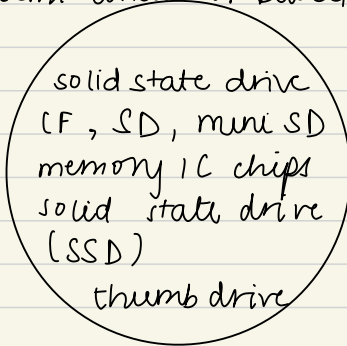 solid state drive
CF, SD, mini SD
memory IC chips
solid state drive
(SSD)
thumb drive